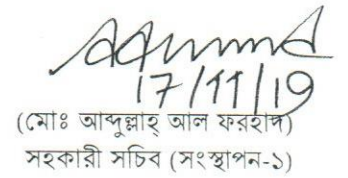 17/11/19
(মোঃ আব্দুল্লাহ্ আল ফরহাদ)
সহকারী সচিব (সংস্থাপন-১)